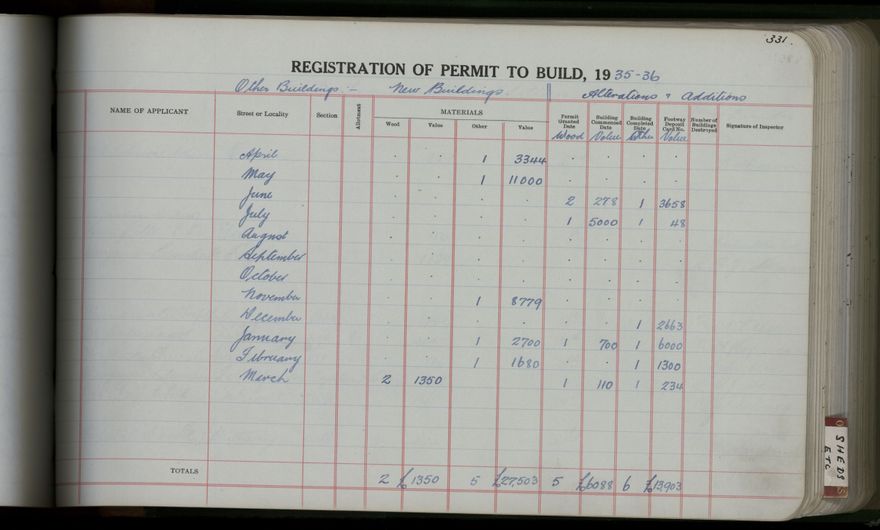 331.
REGISTRATION OF PERMIT TO BUILD, 1935-36
Other Buildings :- New Buildings Alterations & Additions
NAME OF APPLICANT Street or Locality Section Allotment MATERIALS Wood Value Other Value Permit Granted Date Wood Building Commenced Date Value Building Completed Date Other Footway Deposit Card No. Value Number of Buildings Destroyed Signature of Inspector
April . . 1 3344 . . . .
May . . 1 11000 . . . .
June . . . . 2 278 1 3658
July . . . . 1 5000 1 48
August . . . . . . . .
September . . . . . . . .
October . . . . . . . .
November . . 1 8779 . . . .
December . . . . . . 1 2663
January . . 1 2700 1 700 1 6000
February . . 1 1680 . . 1 1300
March 2 1350 1 110 1 234
TOTALS 2 £1350 5 £27,503 5 £6088 6 £13,903
SHEDS
ETC